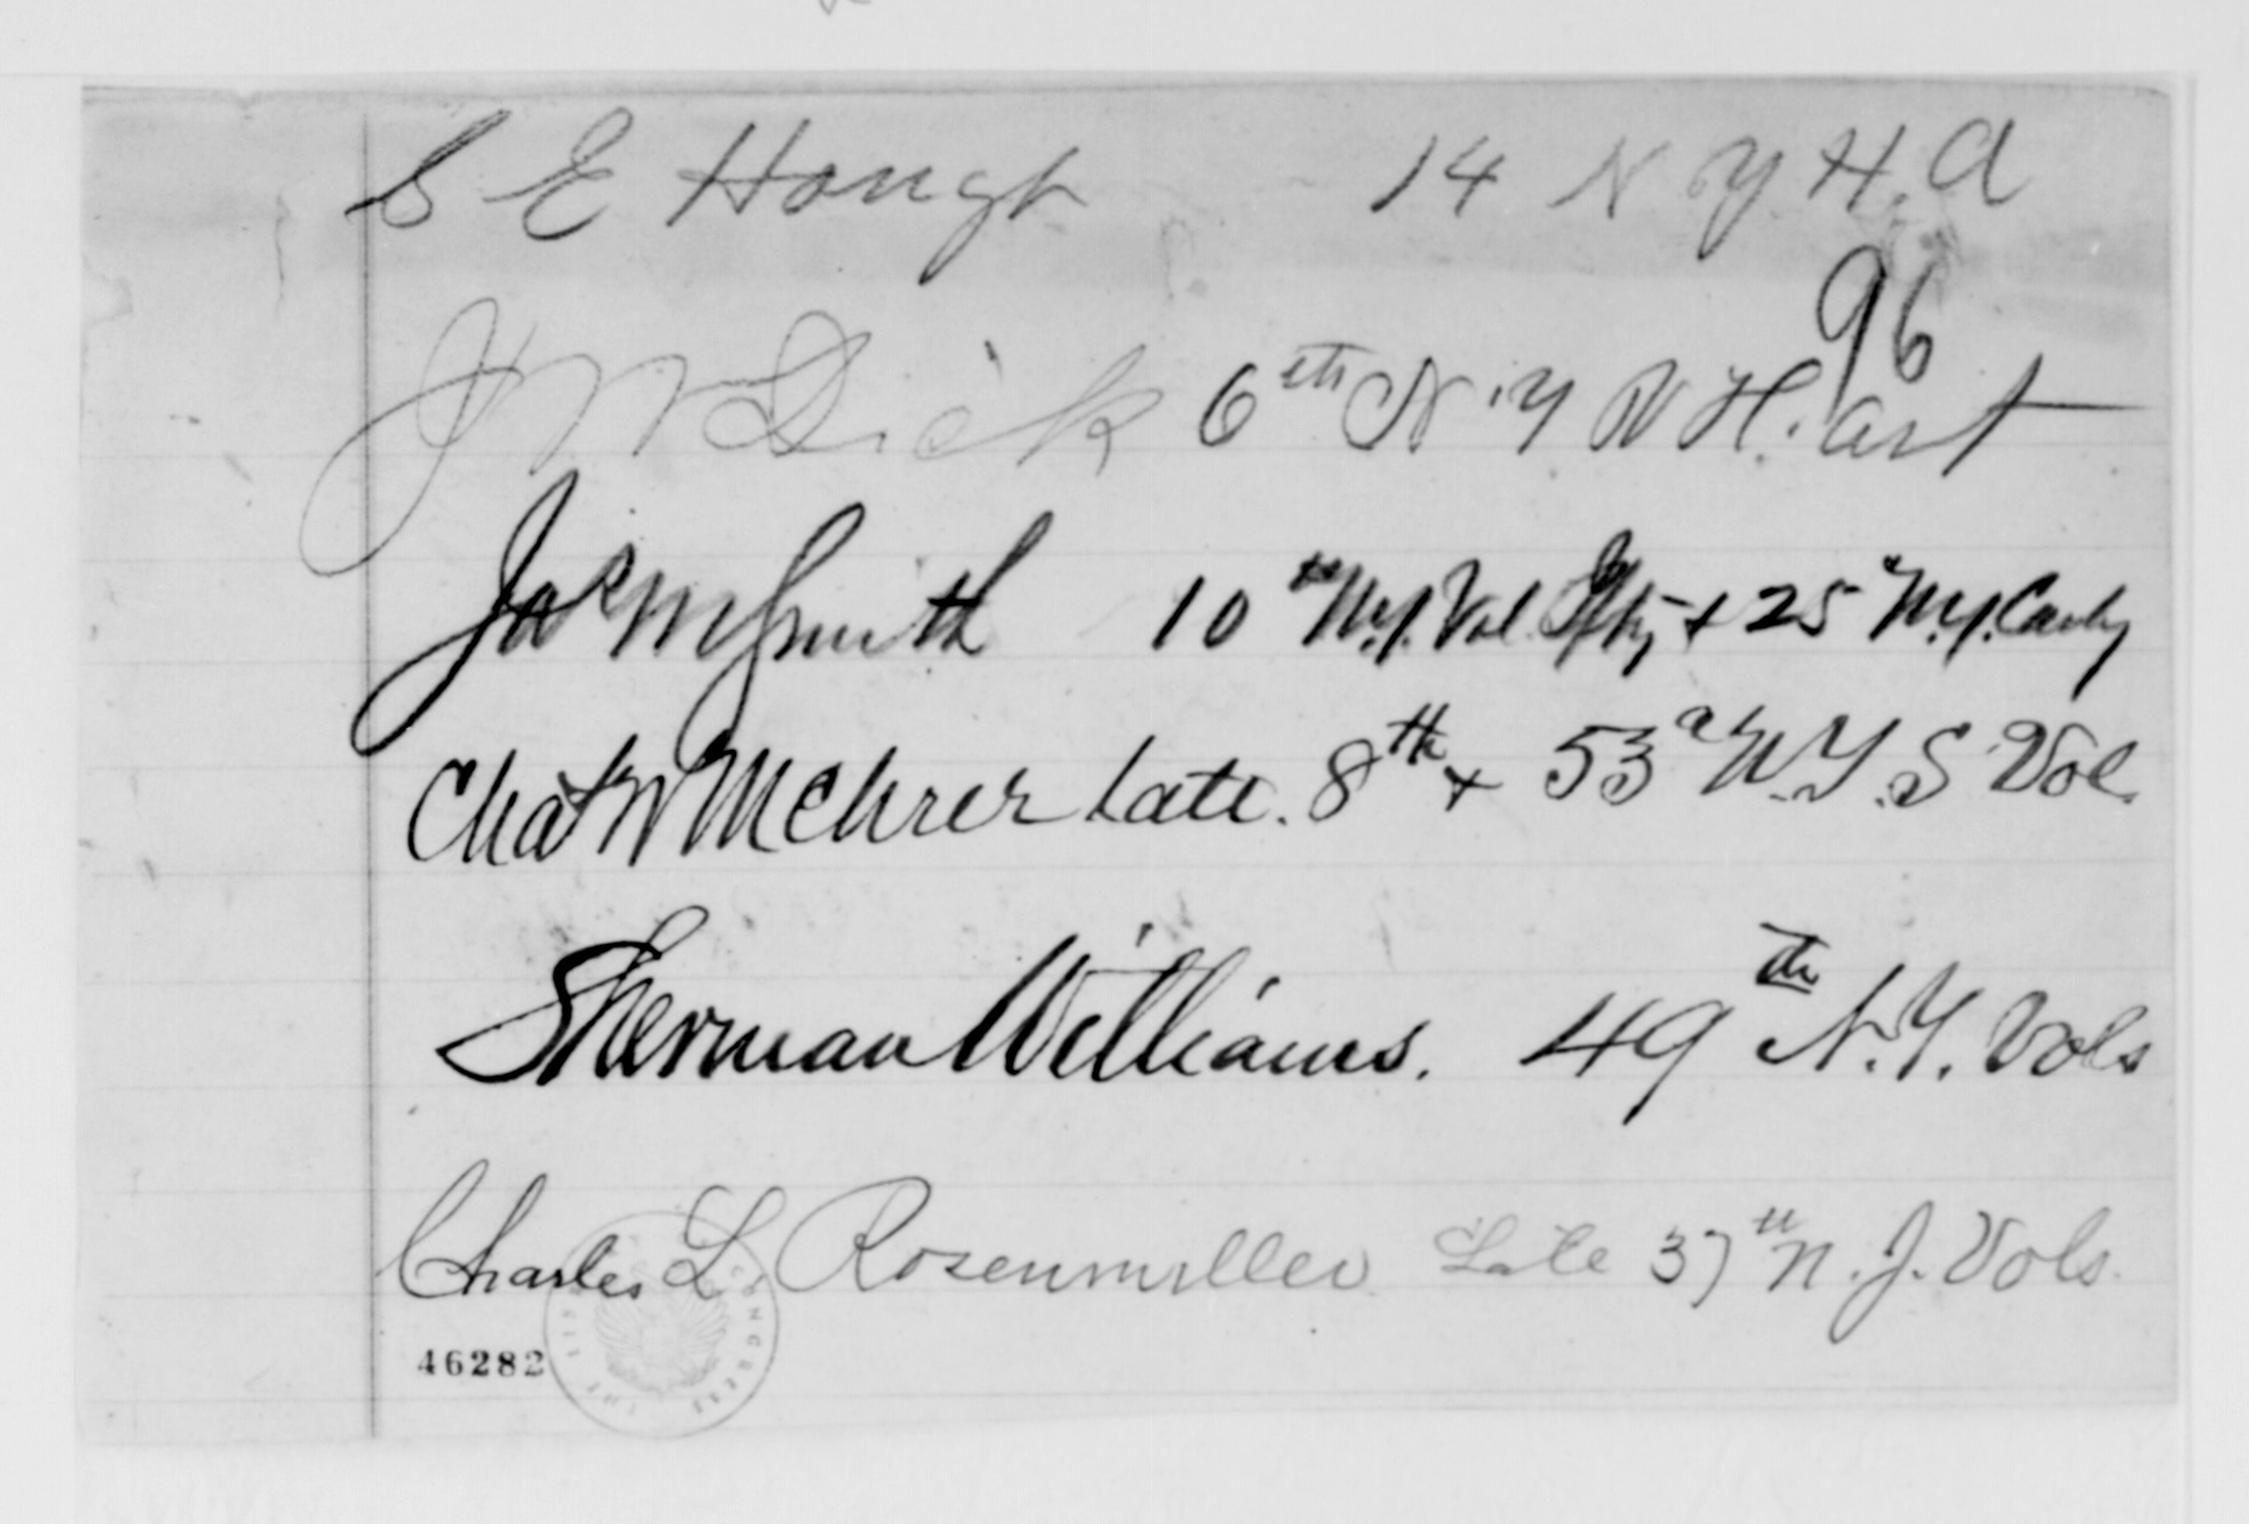 S E Hough 14 N Y H. A
96
J W Dick 6th N.Y V H. Art
Jas M Smith 10th N.Y. Vol. Infty + 25" N.Y. Cavly
Chas W Mehrer Late. 8th + 53d N.Y.S Vol.
Sherman Williams. 49th N.Y. Vols
Charles L. Rosenmiller Late 37th N.J. Vols.
46282